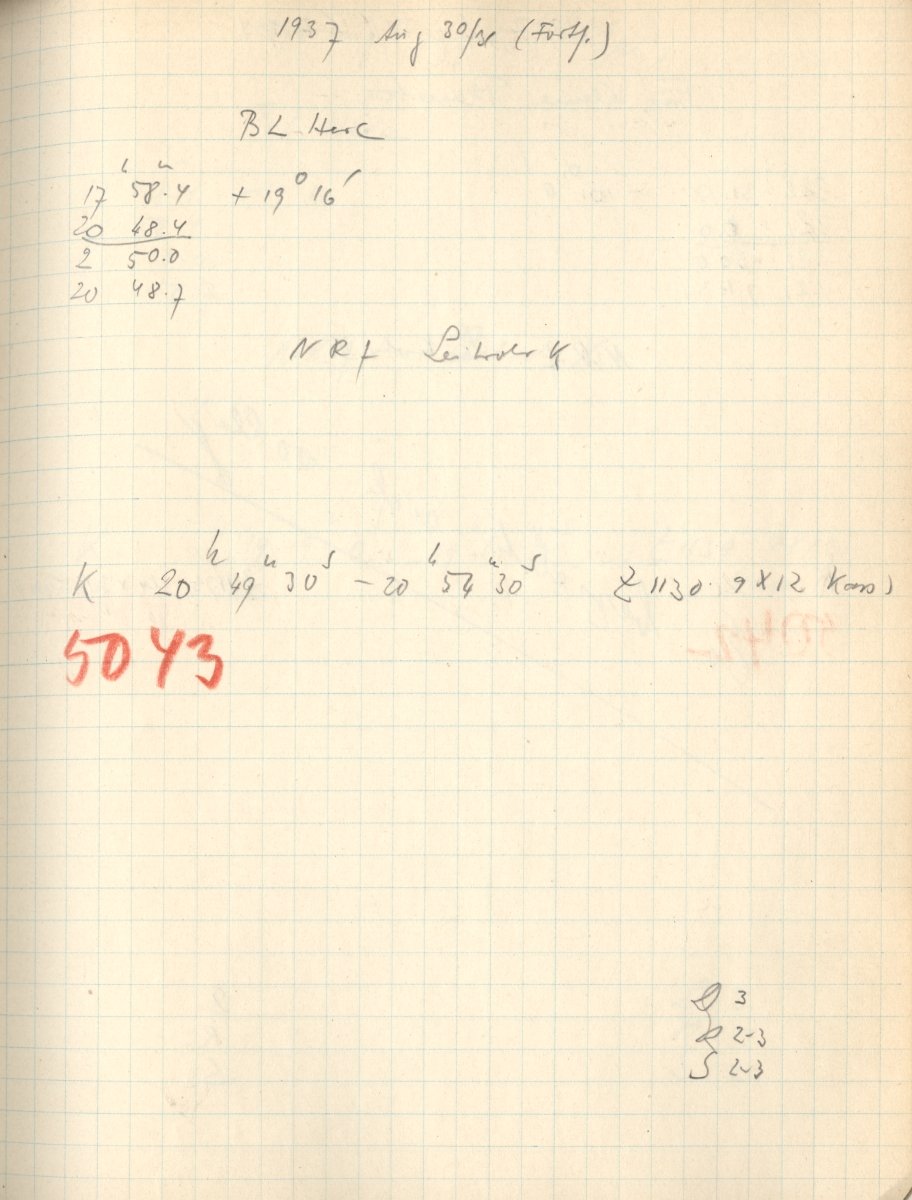 1937 Aug 30/31 (Forts.)
BL Herc
17ʰ 58ᵐ.4 + 19° 16′
20 48.4
2 50.0
20 48.7
NRf Leitrohr K
K 20ʰ 49ᵐ 30ˢ – 20ʰ 54ᵐ 30ˢ Z 1130 9X12 Kass)
5043
D 3
R 2-3
S 2-3